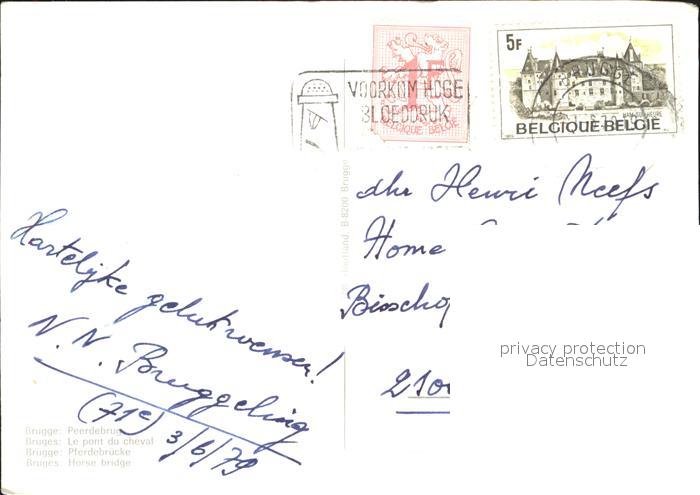 1F
BELGIQUE BELGIE
5F
BELGIQUE-BELGIË
VOORKOM HOGE
BLOEDDRUK
BRUGGE
dhr Henri Neefs
Home
Bisscho
210
Hartelijke gelukwensen!
N.N. Bruggeling
(71e) 3/6/79
B-8200 Brugge
privacy protection
Datenschutz
Brugge: Peerdebrug
Bruges: Le pont du cheval
Brugge: Pferdebrücke
Bruges: Horse bridge